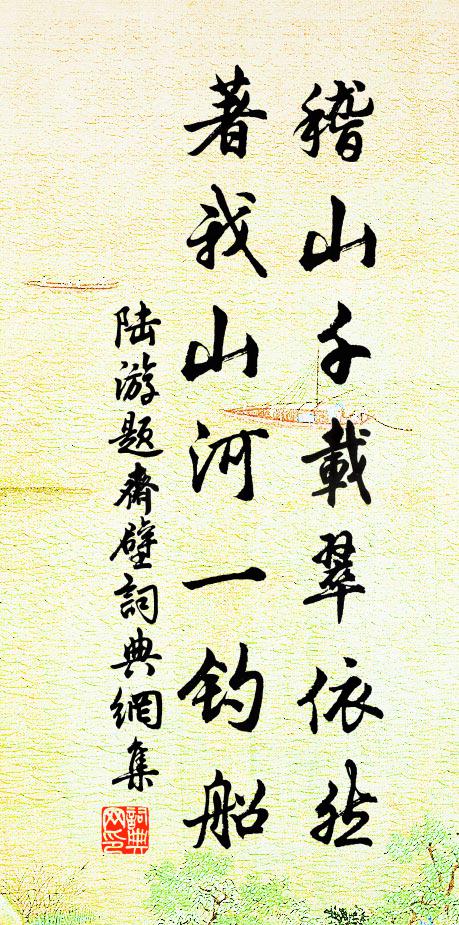 稽山千載翠依然
著我山河一釣船
陆游题齋壁詞典網集
詞典網印